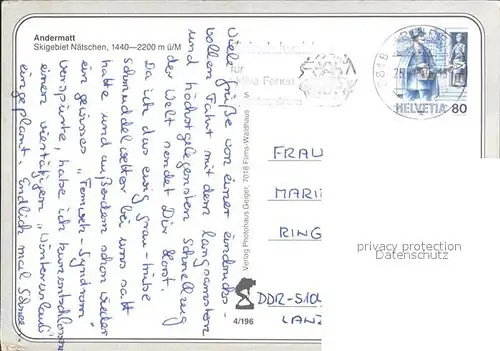 Andermatt
Skigebiet Nätschen, 1440—2200 m ü/M
Viele Grüße von einer eindrucks-
vollen Fahrt mit dem langsamsten
und höchstgelegensten Schnellzug
der Welt sendet Dir Horst.
Da ich das ewig grau-trübe
Schmuddelwetter bei uns satt
hatte und außerdem schon wieder
ein gewisses „Fernweh-Syndrom"
verspürte, habe ich kurzentschlossen
einen viertägigen „Winterurlaub"
eingeplant. Endlich mal Schnee.
Verlag Photohaus Geiger, 7018 Flims-Waldhaus
4/196
für
HELVETIA 80
FRAU
MARI
RING
DDR-510
LAN
privacy protection
Datenschutz